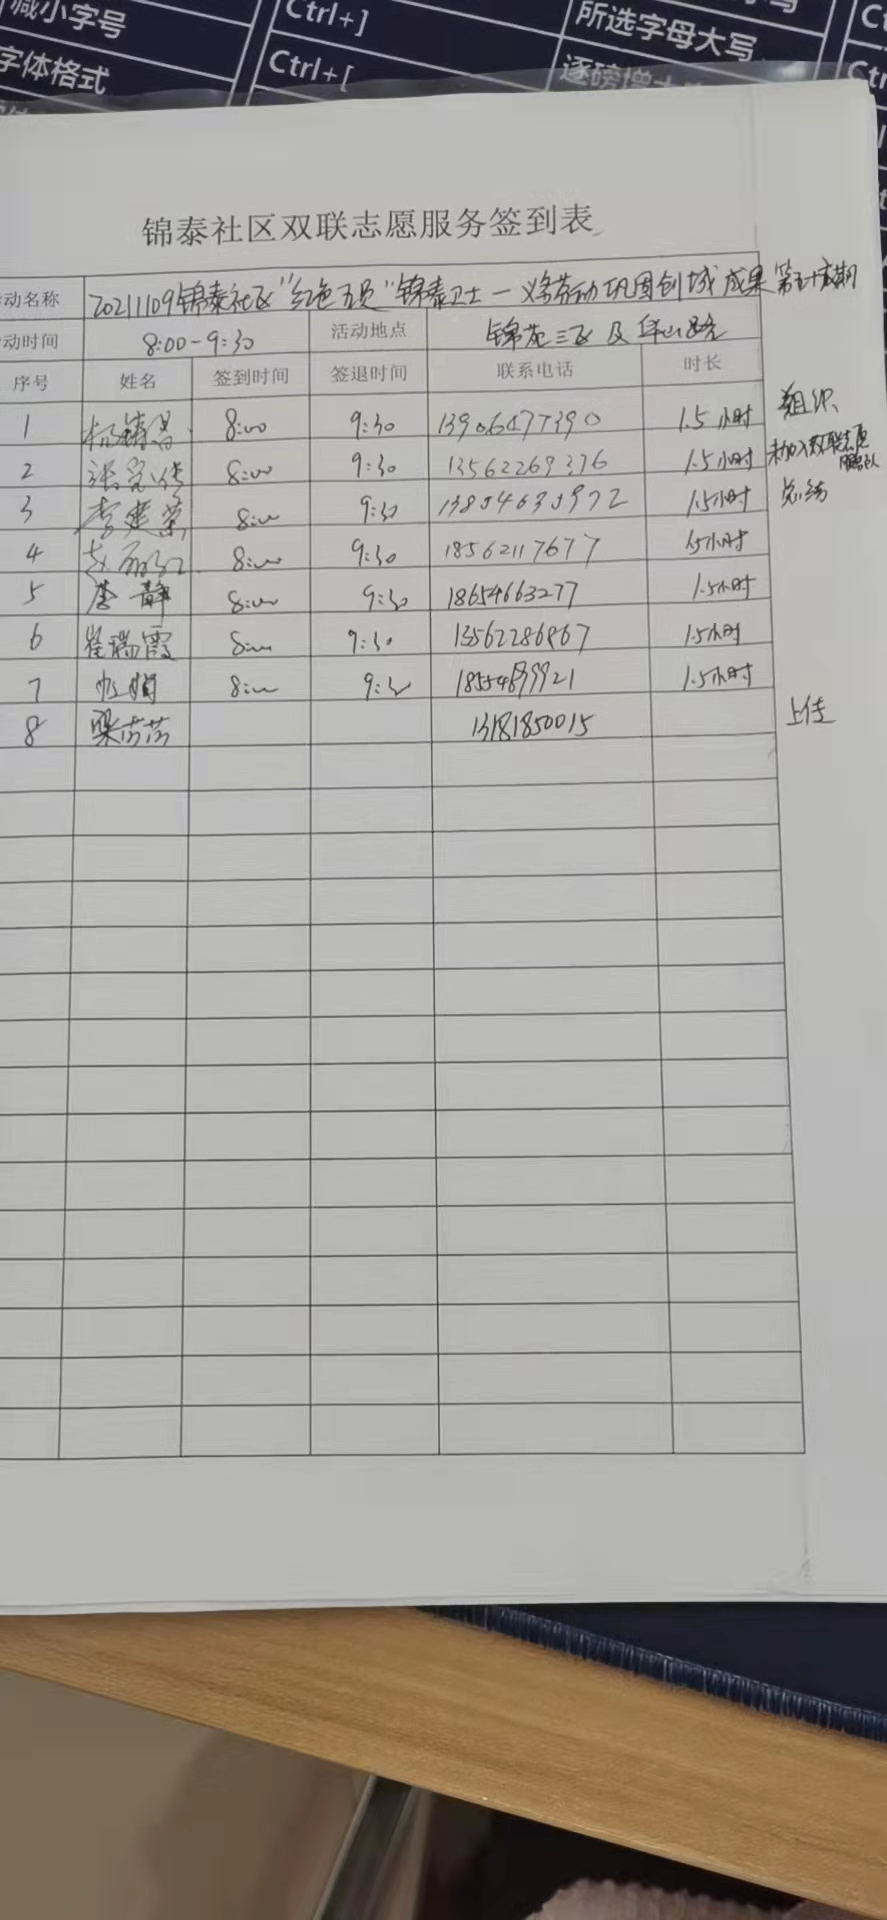 减小字号
Ctrl+]
所选字母大写
字体格式
Ctrl+[
逐磅增大
锦泰社区双联志愿服务签到表
活动名称 20211109锦泰社区"红色五员"锦泰卫士—义务劳动巩固创城成果第五十期
动时间 8:00-9:30 活动地点 锦苑三区及
序号 姓名 签到时间 签退时间 联系电话 时长
1 8:00 9:30 13906477390 1.5小时 组织
2 8:00 9:30 13562269376 1.5小时 未加入双联志愿服务队
3 李建荣 8:00 9:30 13854635972 1.5小时 总结
4 8:00 9:30 18562117677 1.5小时
5 李静 8:00 9:30 18654663277 1.5小时
6 崔瑞霞 8:00 9:30 13562286867 1.5小时
7 8:00 9:30 18554899921 1.5小时
8 梁芳芳 13181850015 上传